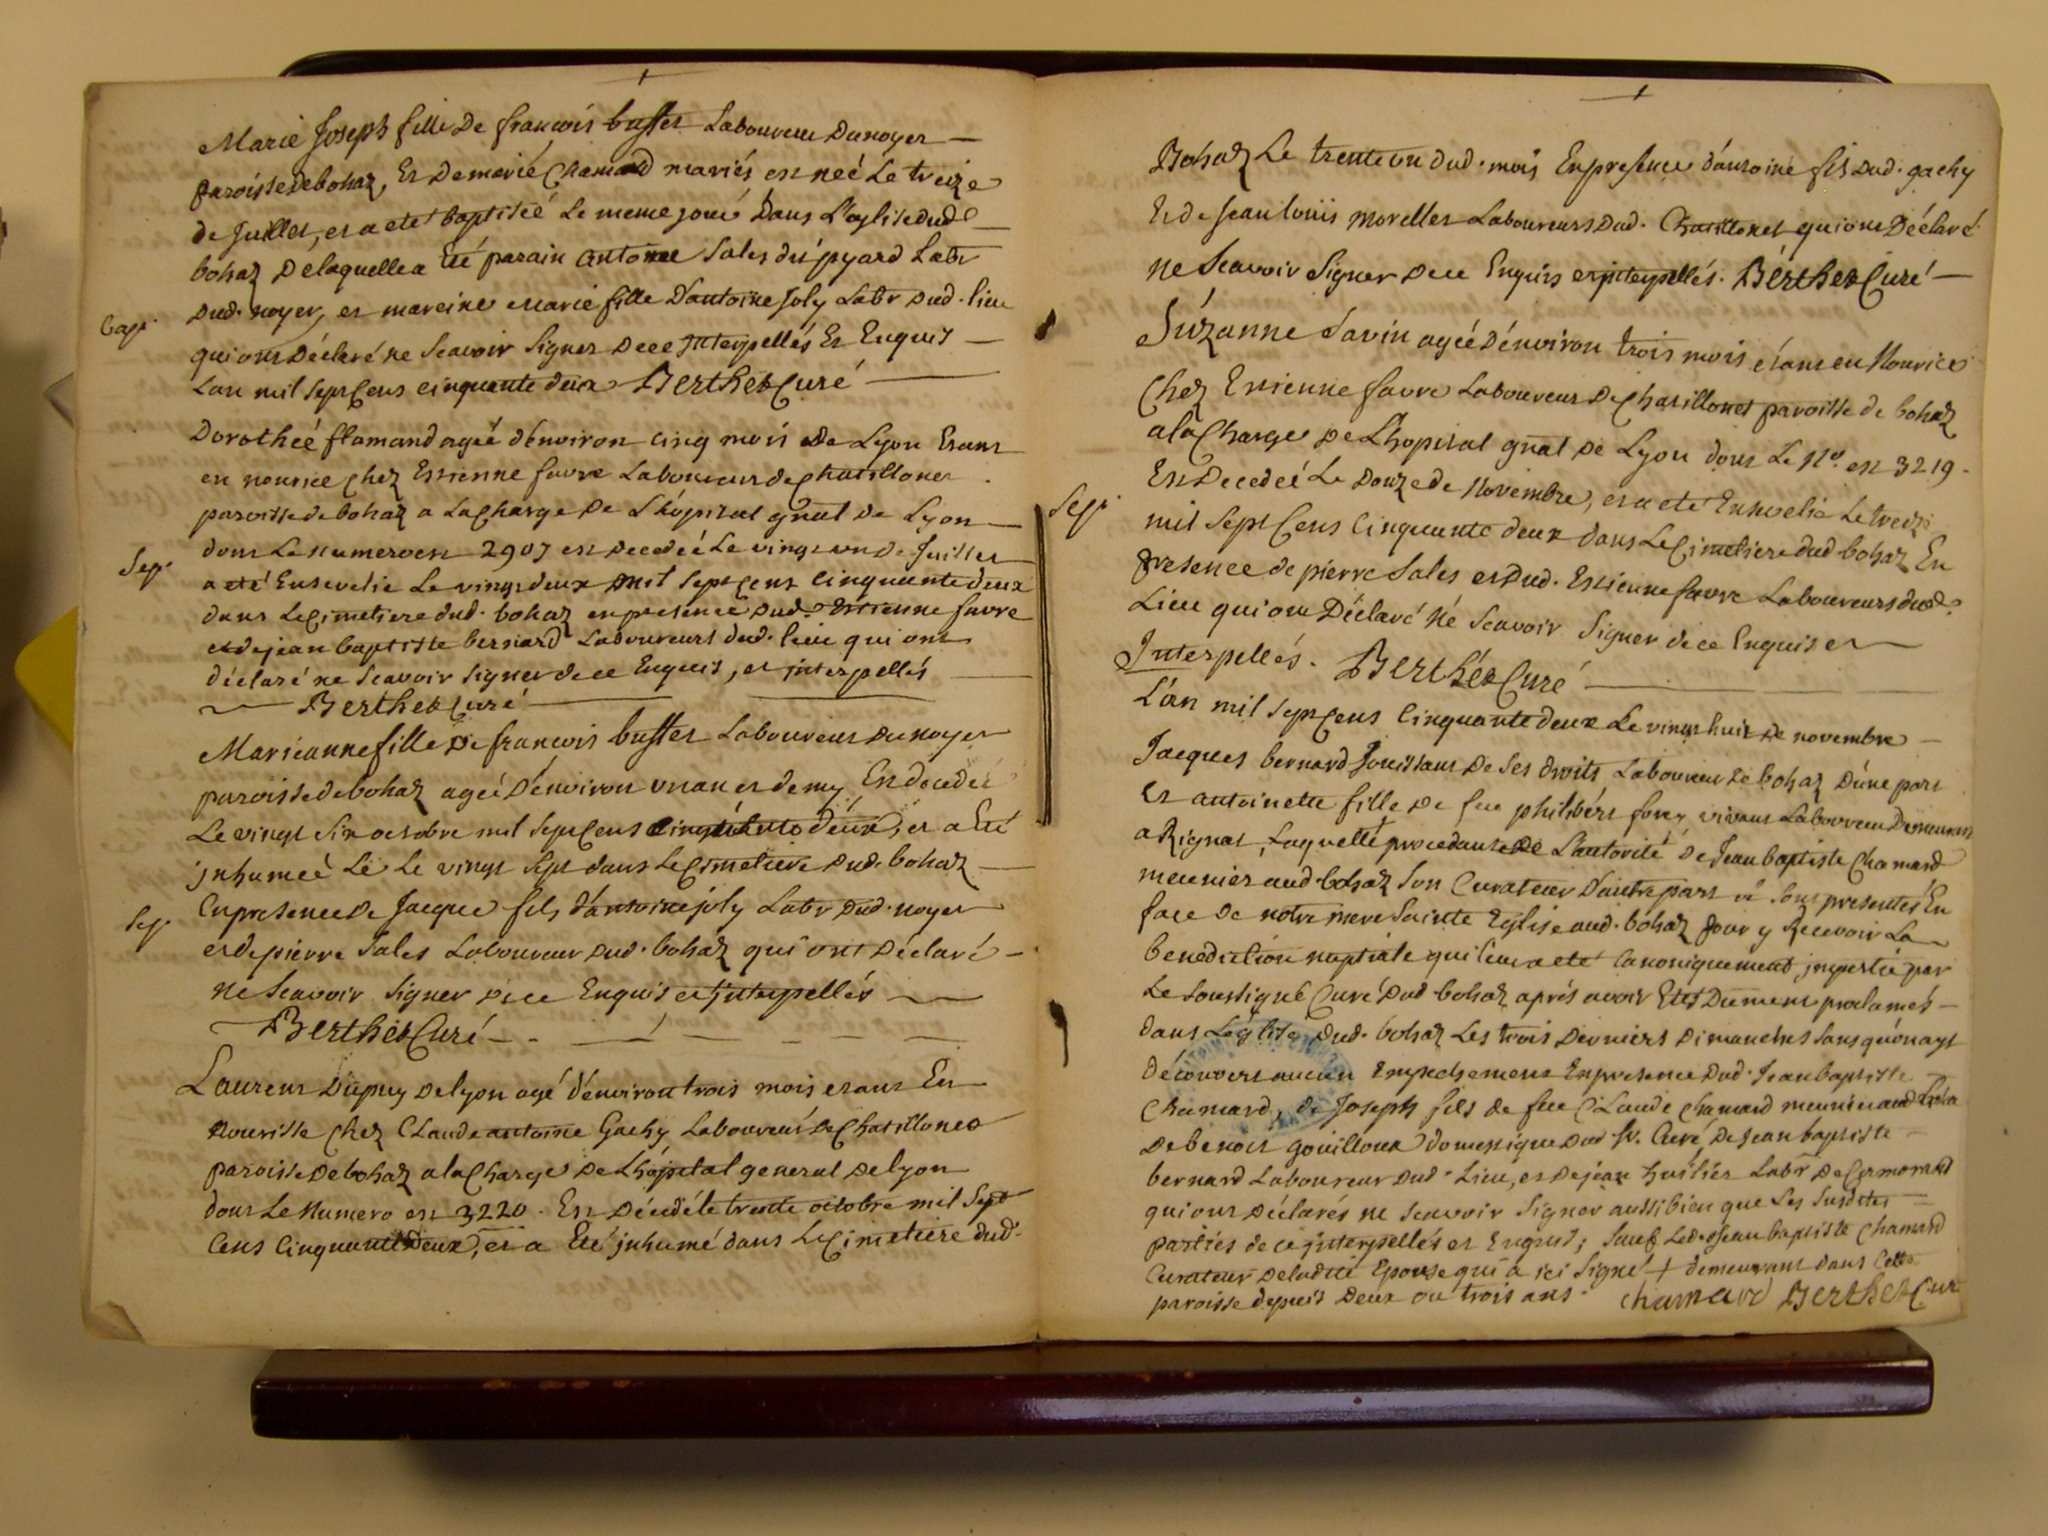 Marie Joseph fille De francois buffet Laboureur Du noyer
paroisse de bohaz, Et De marie Chamard mariés est neé Le treize
de Juillet, et a eté baptiseé Le meme jour Dans L'eglise dud
bohaz De laquelle a Eté parain antoine Sales dú pyard Labr
Dud. noyer, et mareine Marie fille D'antoine Joly Labr Dud. lieu
Bapt.
qui ont Déclaré ne Scavoir Signer De ce Interpellés Et Enquis
Lan mil Sept Cens cinquante deux Berthet Curé
Dorotheé flamand ageé d'environ cinq mois de Lyon Etant
en nourice chez Estienne favre Laboureur de chatillonet
paroisse de bohaz a La Charge De L'hópital gnal de Lyon
dont Le numero est 2907 est Decedeé Le vingt un de Juillet
Sep.
a eté Ensevelie Le vingt deux mil Sept Cens Cinquante deux
dans Le Cimetiere dud. bohaz en presence Dud. Estienne favre
et de jean baptiste bernard Laboureurs dud. lieu qui ont
déclaré ne Scavoir Signer de ce Enquis, et interpellés
Berthet Curé
Marieanne fille De francois buffet Laboureur Du noyer
paroisse de bohaz ageé D'environ un an et demy Est decedeé
Le vingt Six octobre mil Sept Cens Cinquante deux, et a Eté
inhumeé Le Le vingt Sept dans Le Cimetiere Dud. bohaz
En presence De Jacque fils d'antoine joly Labr Dud. noyer
Sep.
et de pierre Sales Laboureur Dud. bohaz qui ont Déclaré
ne Scavoir Signer De ce Enquis et Interpellés
Berthet Curé
Laurent Dúpuy De lyon agé d'environ trois mois etant En
Nourisse Chez Claude antoine Gachy Laboureur De Chatillonet
paroisse De bohaz a la Charge De L'hópital general De lyon
dont Le Numero est 3220. Est Décédé le trente octobre mil Sept
Cens Cinquante Deux, et a Eté inhumé dans Le Cimetiere dud.
Bohaz Le trente un dud. mois En presence d'antoine fils Dud. gachy
Et de Jean louis morellet Laboureurs Dud. Chatillonet qui ont Déclaré
ne Scavoir Signer De ce Enquis et interpellés. Berthet Curé
Súzanne Savin ageé D'environ trois mois étant en Nourice
Chez Estienne favre Laboureur De Chatillonet paroisse de bohaz
a la Charge De L'hopital gnal De Lyon dont Le No. est 3219.
Est Decedeé Le Douze de Novembre, et a eté Ensvelie Le treize
Sep.
mil Sept Cens Cinquante deux dans Le Cimetiere dud bohaz En
presence de pierre Sales et Dud. Estienne favre Laboureurs dud.
Lieu qui ont Déclaré né Scavoir Signer de ce Enquis et
Interpellés. Berthet Curé
L'an mil Sept Cens Cinquante deux Le vingt huit De novembre
Jacques bernard Jouissant De Ses droits Laboureur De bohaz D'une part
Et antoinette fille De feu philibért forey vivant Laboureur Demeurant
a Rignat, Laquelle procedant De L'autorité De Jean baptiste Chamard
meunier aud. bohaz Son Curateur D'autre part Se Sont presentés En
face De notre mere Sainte Eglise aud. bohaz pour y Recevoir La
benediction nuptiale qui leur a eté Canoniquement impartie par
Le Soussigné Curé Dud bohaz aprés avoir Etés Dument proclamés
dans L'église Dud. bohaz Les trois Derniers Dimanches Sans qu'on ayt
décovvert aucun Empechement En presence Dud. Jean baptiste
Chamard, de Joseph fils de feu Claude Chamard meunier aud
De benoit gouilloux domestique Dud Sr. Curé, De Jean baptiste
bernard Laboureur Dud. Lieu, et De jean Labr De Cormorand
qui ont Déclarés ne Scavoir Signer aussi bien que Les Susdites
parties de ce interpellés et Enquis; Sauf Led. Jean baptiste Chamard
Curateur De ladite Epouse qui a ici Signé + demeurant dans Cette
paroisse depuis Deux ou trois ans. Chamard Berthet Cur